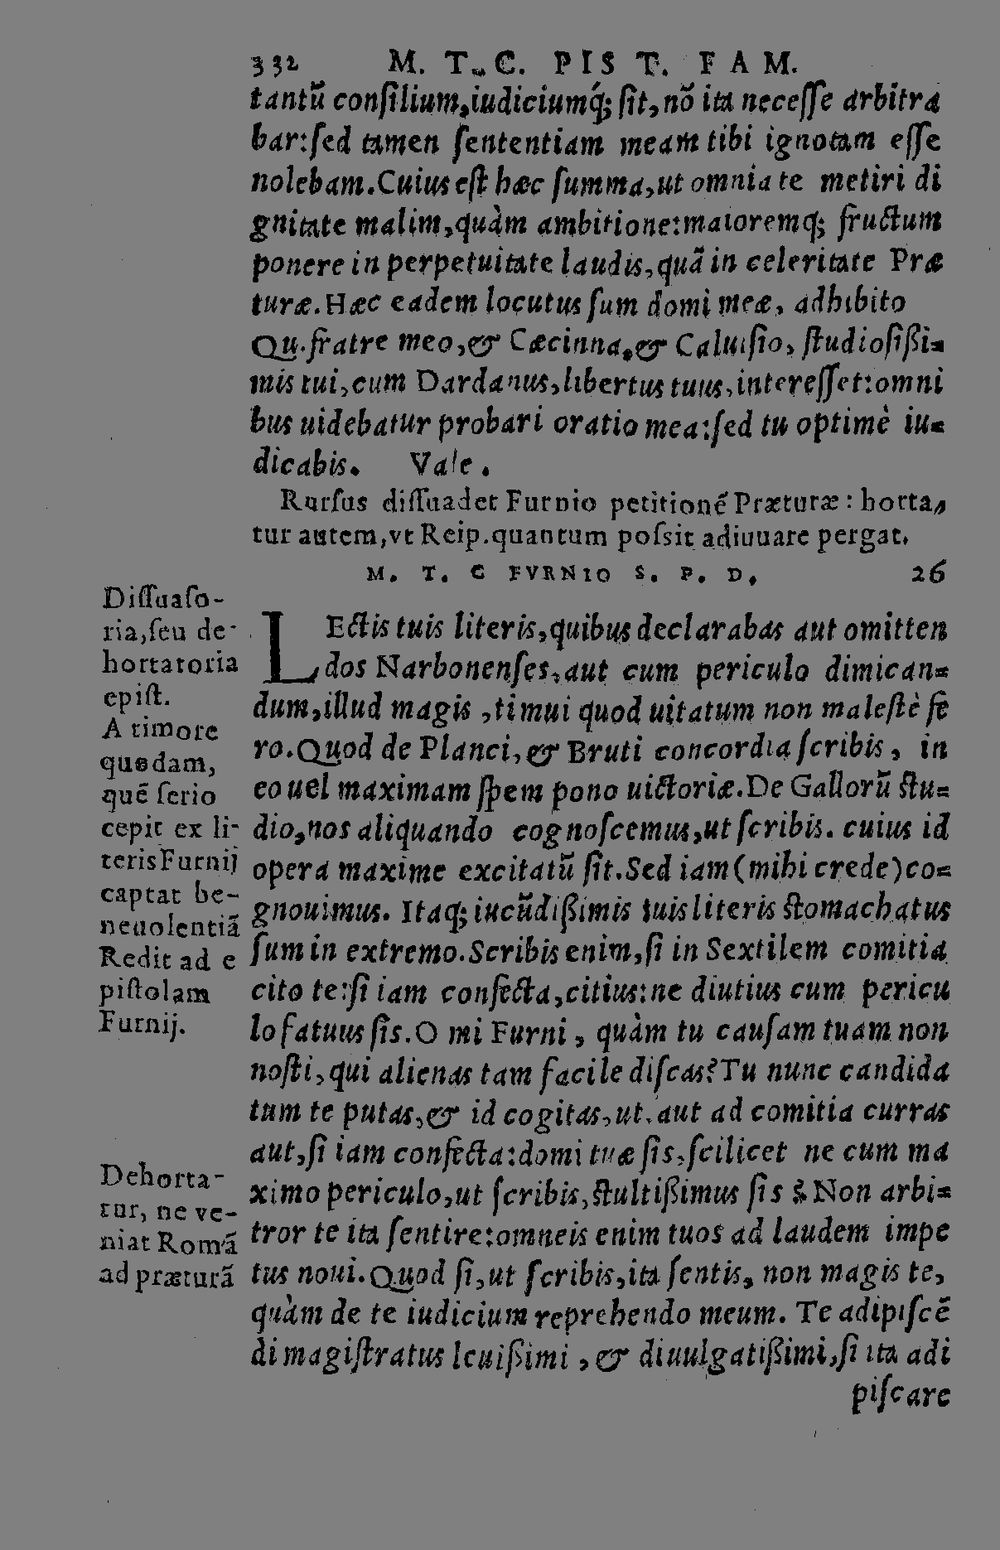 332 M. T. C. PIST. FAM.
tantũ consilium, iudiciumq́; sit, nõ ita necesse arbitra
bar: sed tamen sententiam meam tibi ignotam esse
nolebam. Cuius est hæc summa, ut omnia te metiri di
gnitate malim, quàm ambitione: maioremq; fructum
ponere in perpetuitate laudis, quã in celeritate Præ
turæ. Hæc eadem locutus sum domi meæ, adhibito
Qu. fratre meo, & Cæcinna, & Caluisio, studiosißi=
mis tui, cum Dardanus, libertus tuus, interesset: omni
bus uidebatur probari oratio mea: sed tu optimè iu=
dicabis. Vale.
Rursus dissuadet Furnio petitionẽ Præturæ: horta,
tur autem, vt Reip. quantum possit adiuuare pergat.
M. T. C FVRNIO S. P. D. 26
LEctis tuis literis, quibus declarabas aut omitten
dos Narbonenses, aut cum periculo dimican=
dum, illud magis, timui quod uitatum non malestè fe
ro. Quod de Planci, & Bruti concordia scribis, in
eo uel maximam spem pono uictoriæ. De Gallorũ stu=
dio, nos aliquando cognoscemus, ut scribis. cuius id
opera maxime excitatũ sit. Sed iam (mihi crede) co=
gnouimus. Itaq; iucũdißimis tuis literis stomachatus
sum in extremo. Scribis enim, si in Sextilem comitia
cito te: si iam confecta, citius: ne diutius cum pericu
lo fatuus sis. O mi Furni, quàm tu causam tuam non
nosti, qui alienas tam facile discas? Tu nunc candida
tum te putas, & id cogitas, ut. aut ad comitia curras
aut, si iam confecta: domi tuæ sis, scilicet ne cum ma
ximo periculo, ut scribis, stultißimus sis? Non arbi=
tror te ita sentire: omneis enim tuos ad laudem impe
tus noui. Quod si, ut scribis, ita sentis, non magis te,
quàm de te iudicium reprehendo meum. Te adipiscẽ
di magistratus leuißimi, & diuulgatißimi, si ita adi
piscare
Dissuaso-
ria, seu de-
hortatoria
epist.
A timore
quodam,
quẽ serio
cepit ex li-
teris Furnij
captat be-
neuolentiã
Redit ad e
pistolam
Furnij.
Dehorta-
tur, ne ve-
niat Romã
ad præturã